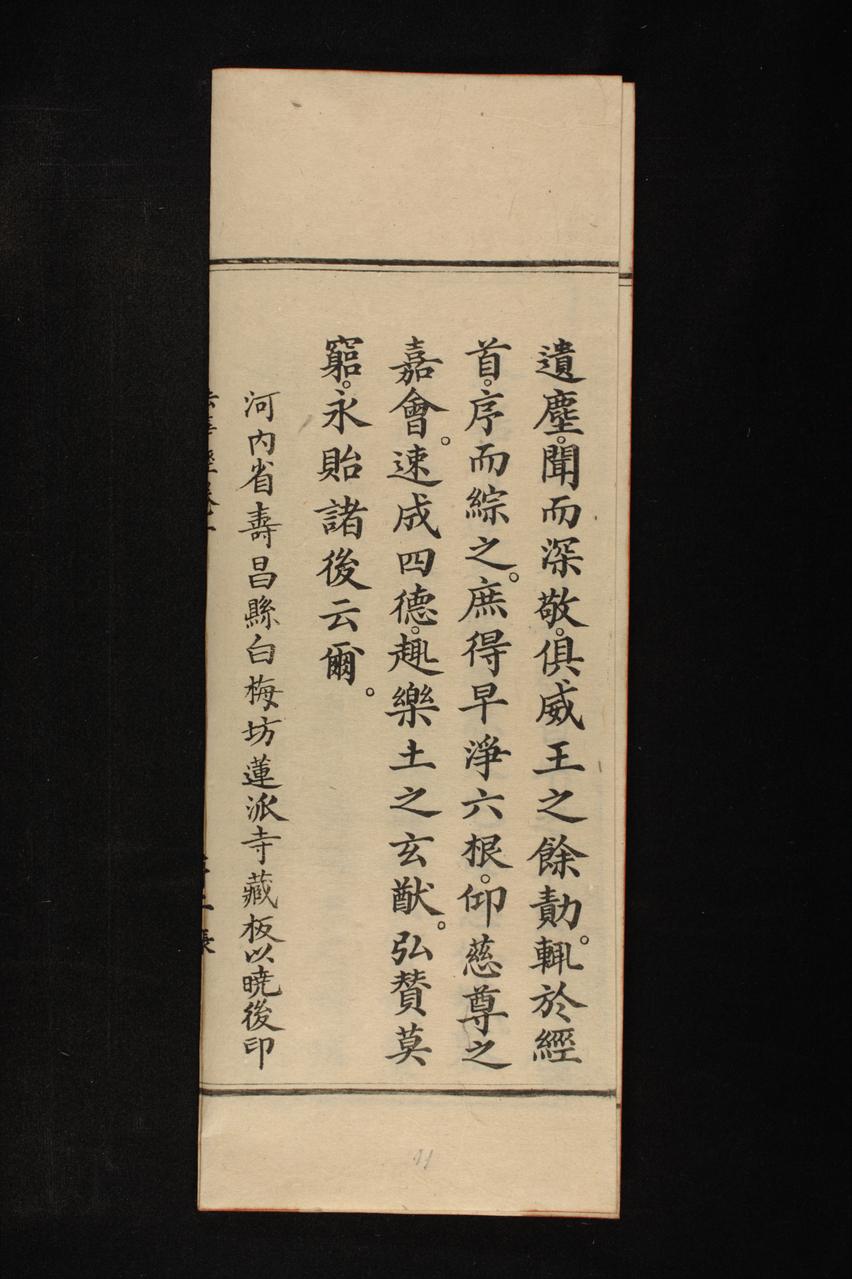 遺塵。聞而深敬。俱威王之餘勣。輒於經
首。序而綜之。庶得早淨六根。仰慈尊之
嘉會。速成四德。趣樂土之玄猷。弘賛莫
窮。永貽諸後云爾。
河内省壽昌縣白梅坊蓮派寺藏板以曉後印
11